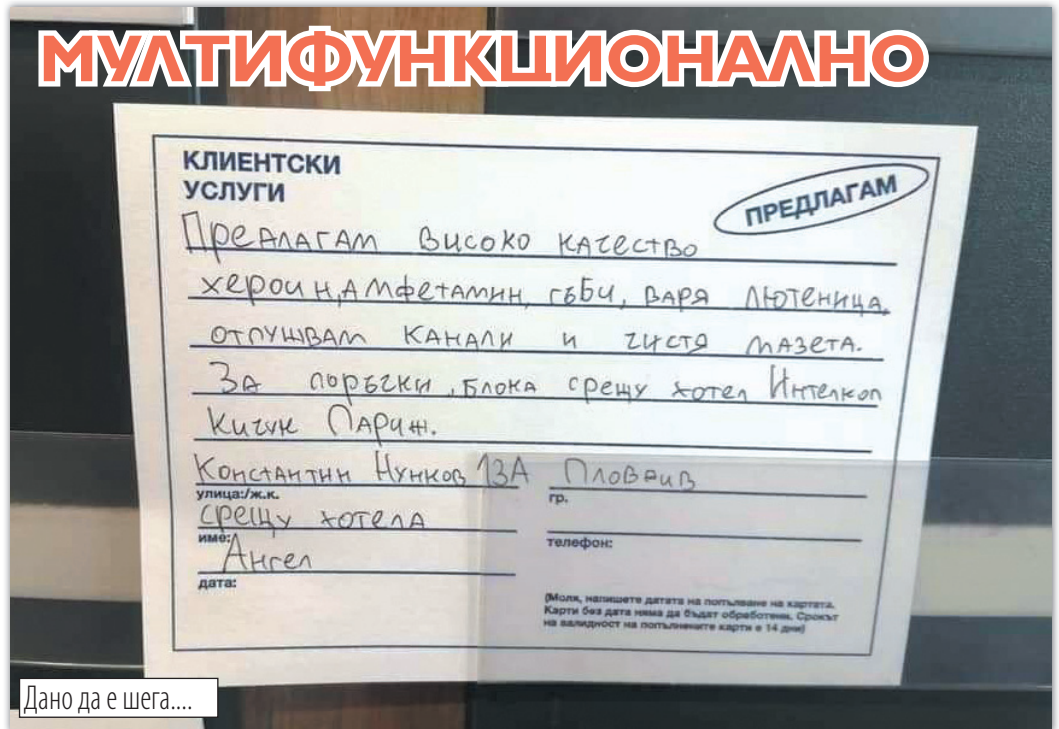 МУЛТИФУНКЦИОНАЛНО
КЛИЕНТСКИ
УСЛУГИ
ПРЕДЛАГАМ
Предлагам високо качество
хероин, амфетамин, гъби, варя лютеница,
отпушвам канали и чистя мазета.
За поръчки, блока срещу хотел Интелкоп
Кичук Париж.
Константин Нунков 13А Пловдив
улица:/ж.к.
гр.
срещу хотела
име:
телефон:
Ангел
дата:
(Моля, напишете датата на попълване на картата.
Карти без дата няма да бъдат обработени. Срокът
на валидност на попълнените карти е 14 дни)
Дано да е шега....